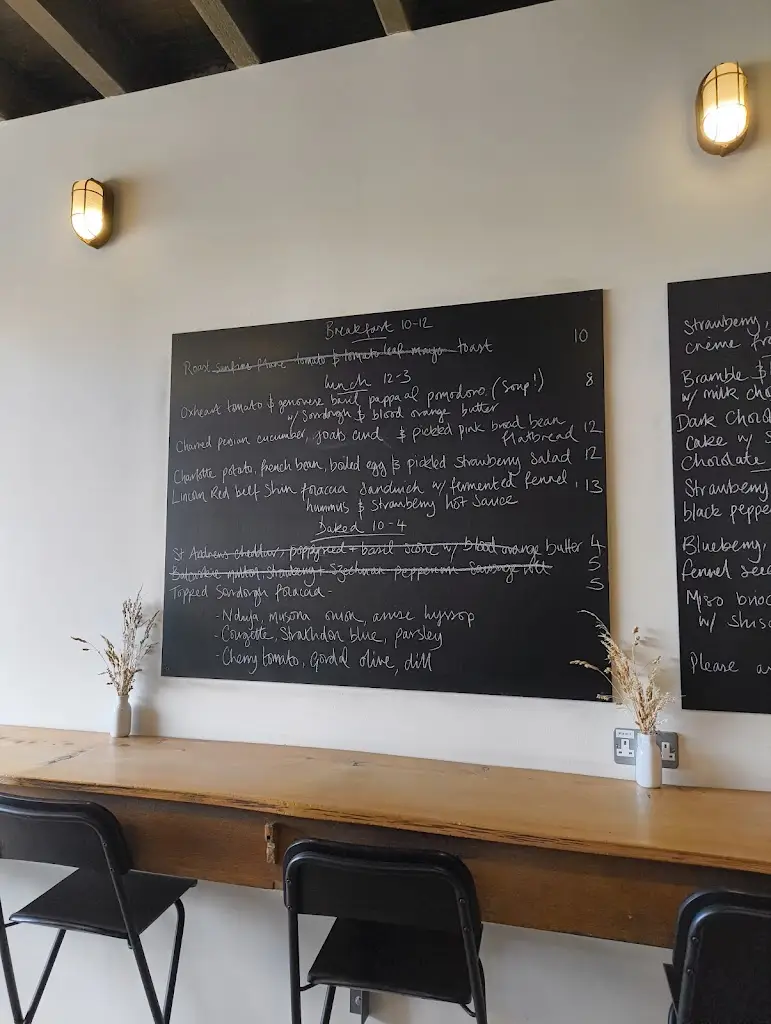 Breakfast 10-12
Roast tomato & tomato leaf mayo toast 10
Lunch 12-3
Oxheart tomato & genovese basil pappa al pomodoro (soup!) 8
w/ Sourdough & blood orange butter
Charred persian cucumber, goats curd & pickled pink broad bean
flatbread 12
Charlotte potato, french bean, boiled egg & pickled strawberry salad 12
Lincoln Red beef shin focaccia sandwich w/ fermented fennel, 13
hummus & Strawberry hot sauce
Baked 10-4
St Andrews cheddar, poppyseed + basil scone w/ blood orange butter 4
mutton, Strawberry + Szechuan peppercorn Sausage roll 5
Topped Sourdough focaccia - 5
- Nduja, onion, anise hyssop
- Courgette, Strathdon blue, parsley
- Cherry tomato, Gordal olive, dill
Strawberry,
crème fra
Bramble &
w/ milk cho
Dark Chocol
cake w/ S
Chocolate
Strawberry
black peppe
Blueberry,
fennel see
Miso
w/ Shiso
Please